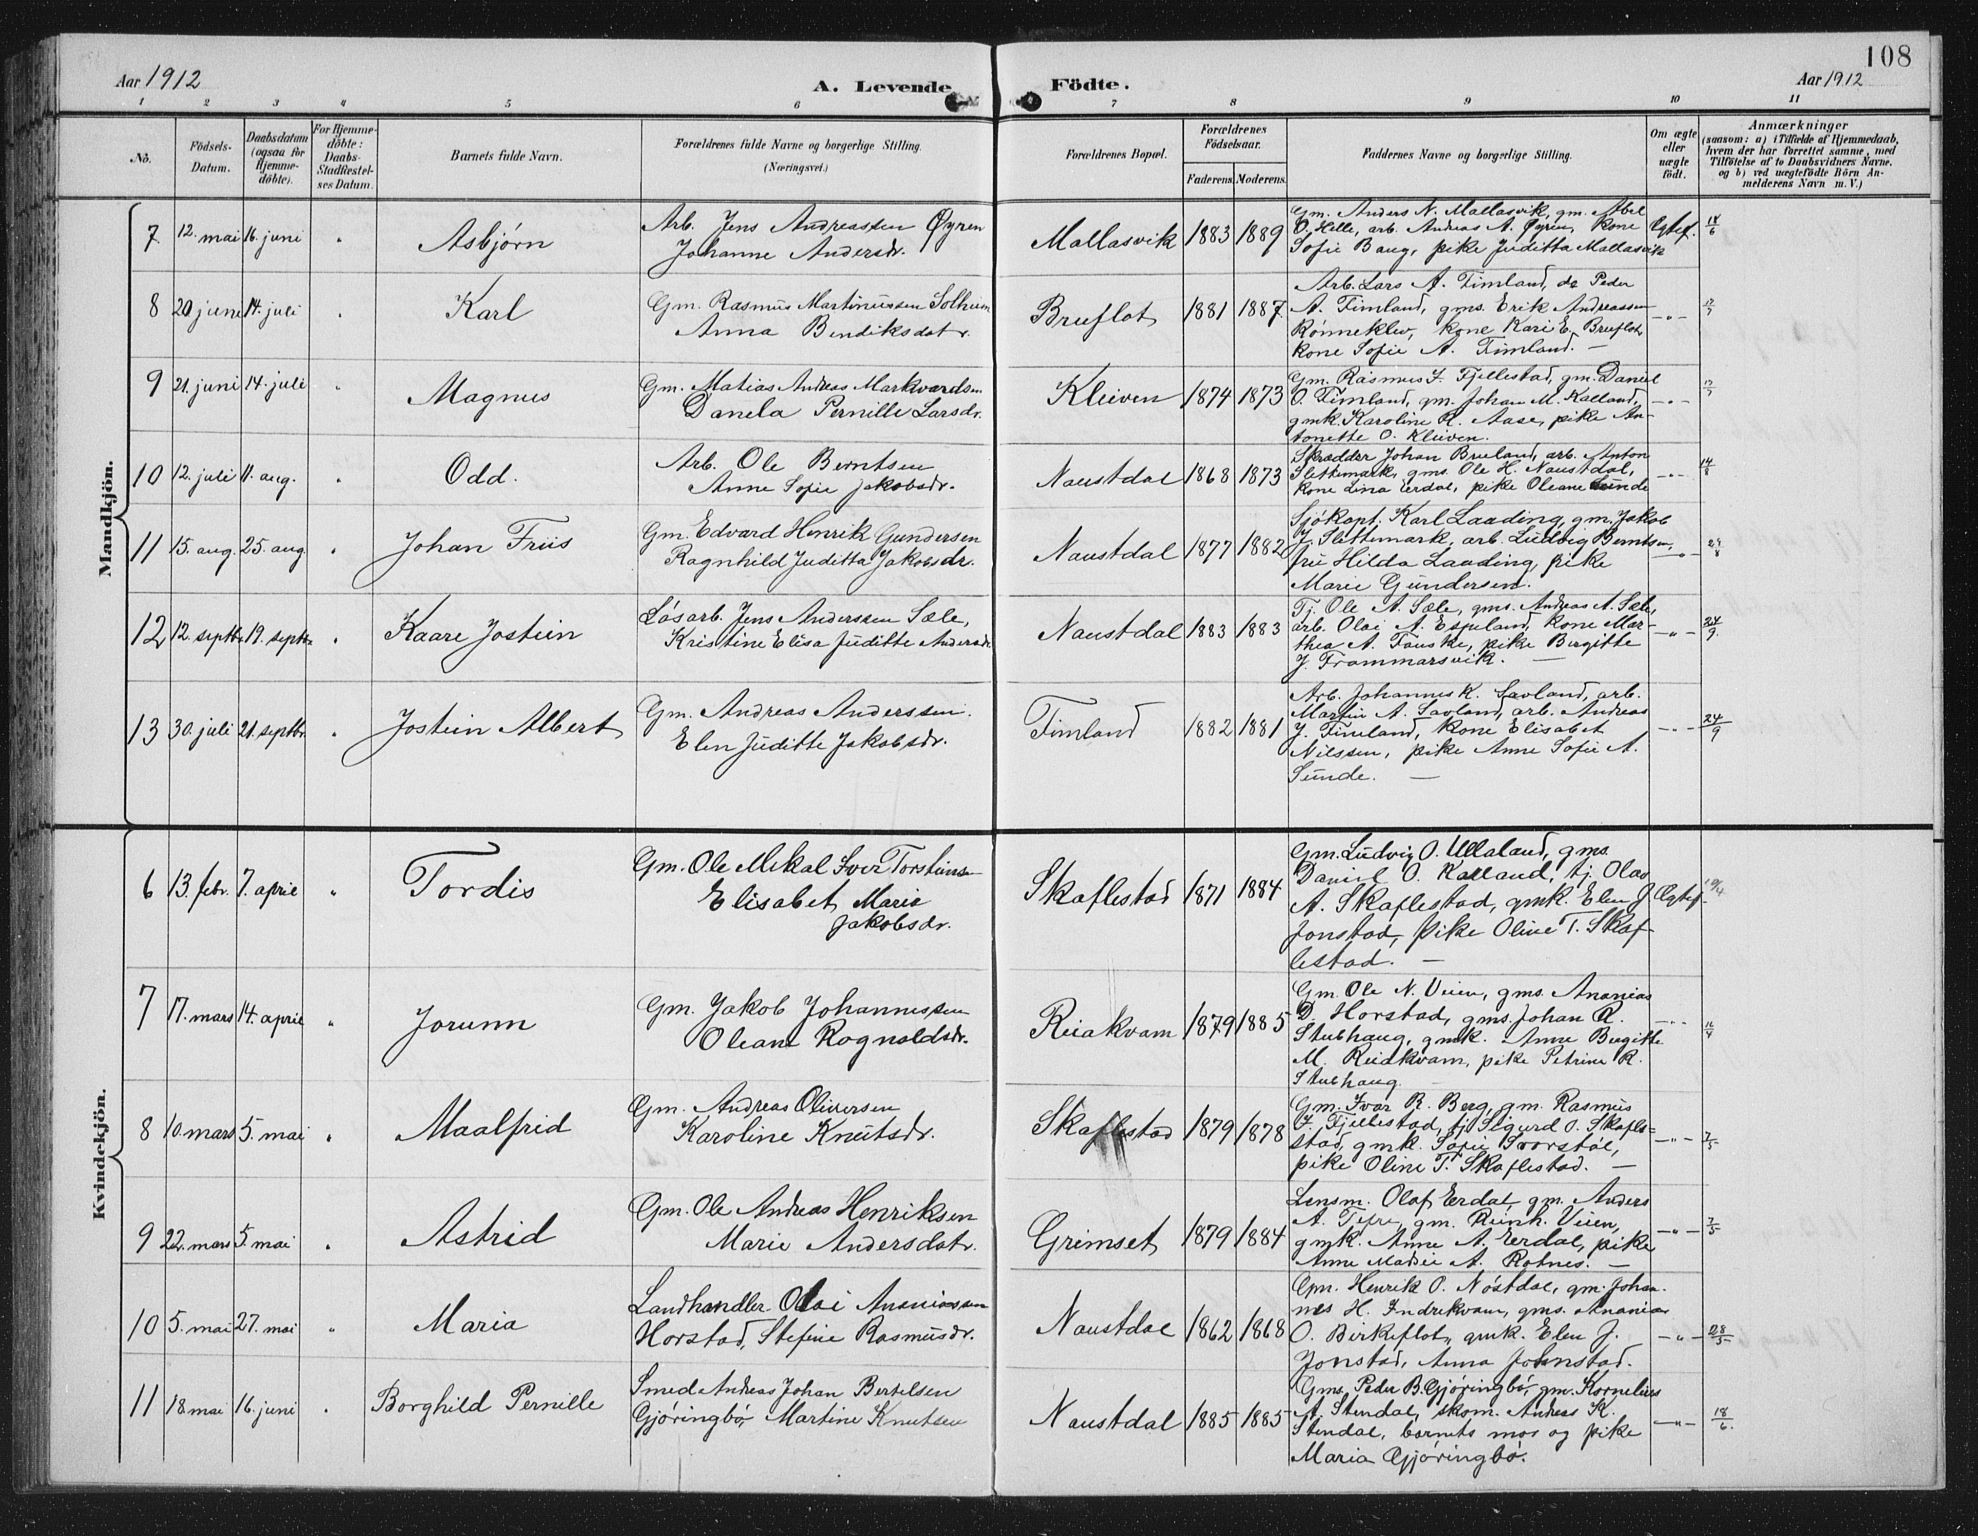 108
Aar 1912
A. Levende
Födte.
Aar 1912
1 2 3 4 5 6 7 8 9 10 11
No.
Födsels-
Datum.
Daabsdatum
(ogsaa for
Hjemme-
döbte).
For Hjemme-
döbte:
Daabs-
Stadfæstel-
ses Datum.
Barnets fulde Navn.
Forældrenes fulde Navne og borgerlige Stilling.
(Næringsvei.)
Forældrenes Bopæl.
Forældrenes
Födselsaar.
Faderens. Moderens.
Faddernes Navne og borgerlige Stilling.
Om ægte
eller
uægte
födt.
Anmærkninger
(saasom: a) i Tilfælde af Hjemmedaab,
hvem der har forrettet samme, med
Tilföielse af to Daabsvidners Navne.
og b) ved uægtefödte Börn An-
melderens Navn m. V.)
Mandkjön.
7 12. mai 16. juni " Asbjørn
Arb. Jens Andreassen Øyren
Johanne Andersdr.
Mallasvik 1883 1889
Gm. Anders N. Mallasvik, gm. Abel
O. Helle, arb. Andreas A. Øyrin, kone
Sofie Baug, pike Juditta Mallasvik
Egtef. 18/6
8 20 juni 14. juli " Karl
Gm. Rasmus Martinussen Solheim
Anna Bendiksdatr.
Bruflot 1881 1887
Arb. Lars A. Timland, do Peder
A. Timland, gms. Erik Andreassen
Rønneklev, kone Kari E. Bruflot,
kone Sofie A. Timland. —
—"—
9 21. juni 14. juli " Magnus
Gm. Matias Andreas Markvardsen
Danela Pernille Larsdr.
Kleiven 1874 1873
Gm. Rasmus J. Fjellestad, gm. Daniel
O. Timland, gm. Johan M. Kalland,
gmk. Karoline R. Aase, pike An-
tonette O. Kleiven.
—"—
10 12. juli 11. aug. " Odd.
Arb. Ole Berntsen
Anne Sofie Jakobsdr.
Naustdal 1868 1873
Skrædder Johan Bruland, arb. Anton
Slettemark, gms. Ole H. Naustdal,
kone Lina Erdal, pike Oleane Sunde
—"— 14/8
11 15. aug. 25. aug. " Johan Friis
Gm. Edvard Henrik Gundersen
Ragnhild Juditta Jakobsdr.
Naustdal 1877 1882
Sjökapt. Karl Laading, gm. Jakob
J. Slettemark, arb. Ludvig Berntsen,
fru Hilda Laading, pike
Marie Gundersen.
—"—
12 12. septbr. 19. septbr. " Kaare Jostein
Løsarb. Jens Anderssen Sæle,
Kristine Elisa Juditte Andersdr.
Naustdal 1883 1883
Tj. Ole A. Sæle, gms. Andreas A. Sæle,
arb. Olai A. Espeland, kone Mar-
thea A. Fauske, pike Birgitte
J. Frammarsvik. —
—"— 24/9.
13 30. juli 21. septbr. " Jostein Albert
Gm. Andreas Anderssen.
Elen Juditte Jakobsdr.
Timland 1882 1881
Arb. Johannes K. Savland, arb.
Martin A. Savland, arb. Andreas
J. Timland, kone Elisabet
Nilssen, pike Anne Sofie A.
Sunde. —
—"— 24/9
Kvindekjön.
6 13. febr. 7. april " Tordis
Gm. Ole Mikal Iver Torsteinsen
Elisabet Marie
Jakobsdr.
Skaflestad 1871 1884
Gm. Ludvig O. Ullaland, gms.
Daniel O. Kalland, tj. Olav
A. Skaflestad, gmk. Elen J.
Jonstad, pike Oline T. Skaf-
lestad. —
Egtef.
7 17. mars 14. april " Jorunn
Gm. Jakob Johannessen
Oleane Rognaldsdr.
Reiakvam 1879 1885
Gm. Ole N. Veien, gms. Ananias
D. Horstad, gms. Johan R.
Stubhaug, gmk. Anne Birgitte
M. Reidkvam, pike Petrine R.
Stubhaug.
—"— 16/4
8 10. mars 5. mai " Maalfrid
Gm. Andreas Oliversen
Karoline Knutsdr.
Skaflestad 1879 1878
Gm. Ivar R. Berg, gm. Rasmus
J. Fjellestad, tj. Sigurd O. Skafle-
stad, gmk. Sofie Svorstøl,
pike Oline T. Skaflestad. —
—"— 7/5
9 22. mars 5. mai " Astrid
Gm. Ole Andreas Henriksen
Marie Andersdatr.
Grimset 1879 1884
Lensm. Olaf Erdal, gm. Anders
A. Tefre, gm. Reinh. Veien,
gmk. Anne A. Erdal, pike
Anne Marie A. Rotnes. —
—"— 7/5
10 5. mai 27. mai " Maria
Landhandler Olai Ananiassen
Horstad, Stefine Rasmusdr.
Naustdal 1862 1868
Gm. Henrik O. Nøstdal, gm. Johan-
nes H. Indrekvam, gms. Ananias
O. Birkeflot, gmk. Elen J.
Jonstad, Anna Johnstad.
—"— 28/5
11 18. mai 16. juni " Borghild Pernille
Smed Andreas Johan Bertelsen
Gjöringbö, Martine Knutsen
Naustdal 1885 1885
Gms. Peder B. Gjöringbö, gm. Kornelius
A. Stendal, skom. Andreas K.
Stendal, barnets mor og pike
Maria Gjöringbö.
—"— 18/6.